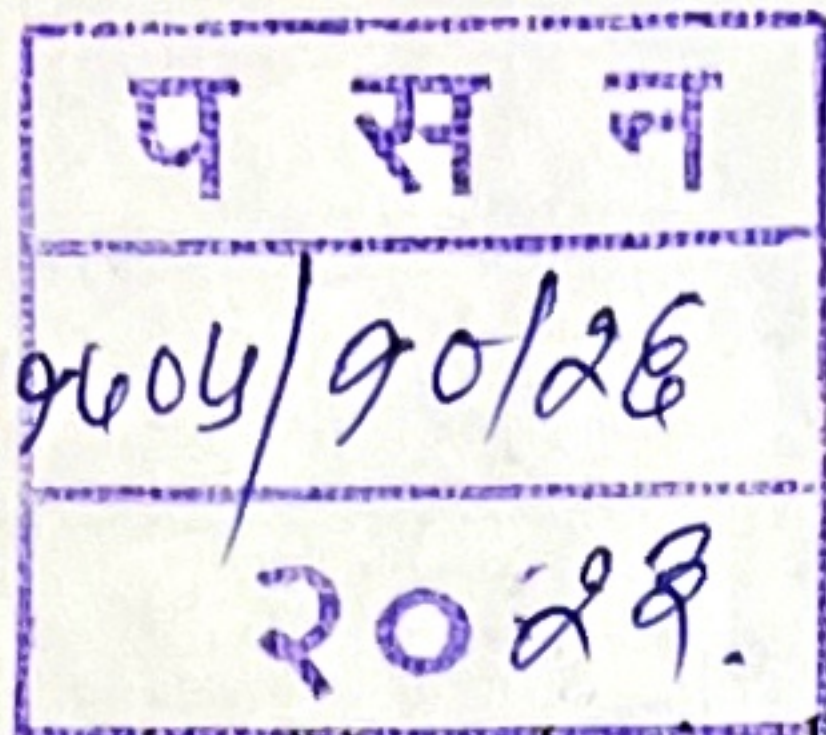 प स न
१७०५/१०/२६
२०२३.